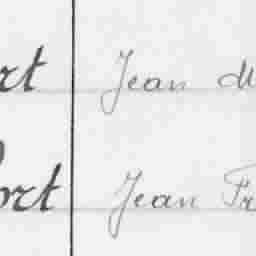 rt Jean M
ort Jean Fr